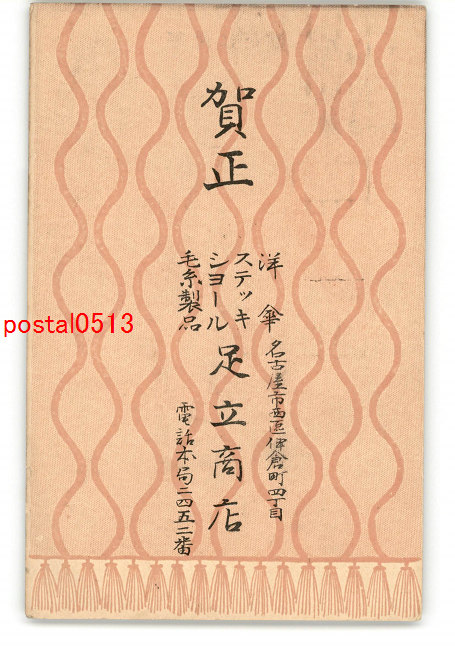 賀正
洋傘
ステッキ
ショール
毛糸製品
名古屋市西区伊倉町四丁目
足立商店
電話本局二四五二番
postal0513